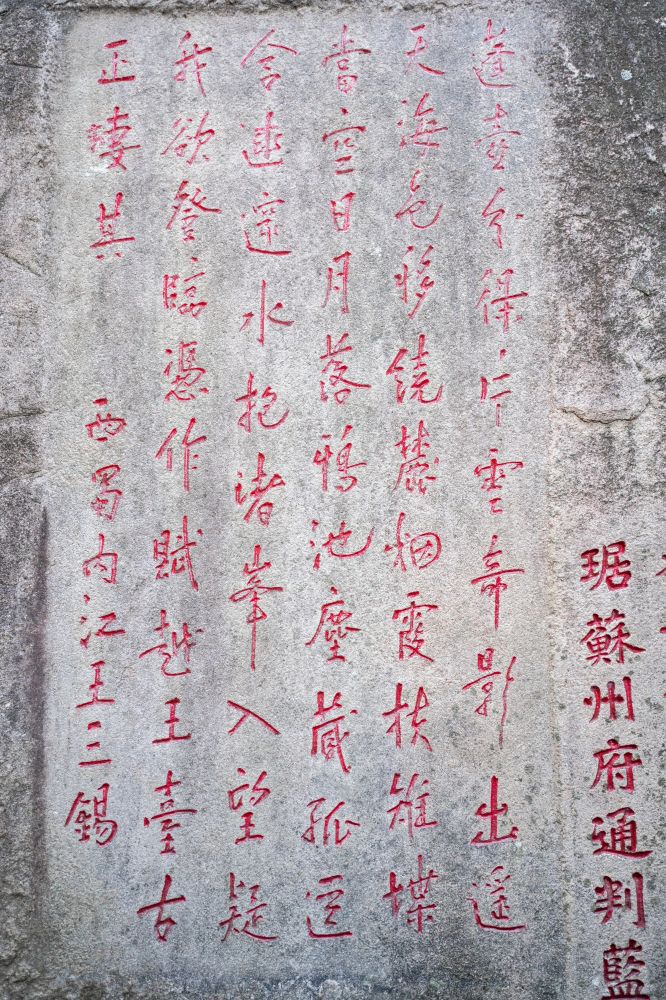 琚蘇州府通判藍
蓬壺分得片雲奇影出遥
天海色移繞麓烟霞扶雉堞
當空日月落鴉池塵藏孤逕
含水抱諸峯入望疑
我欲登臨憑作賦越王臺古
正悽其 西蜀内江王三錫